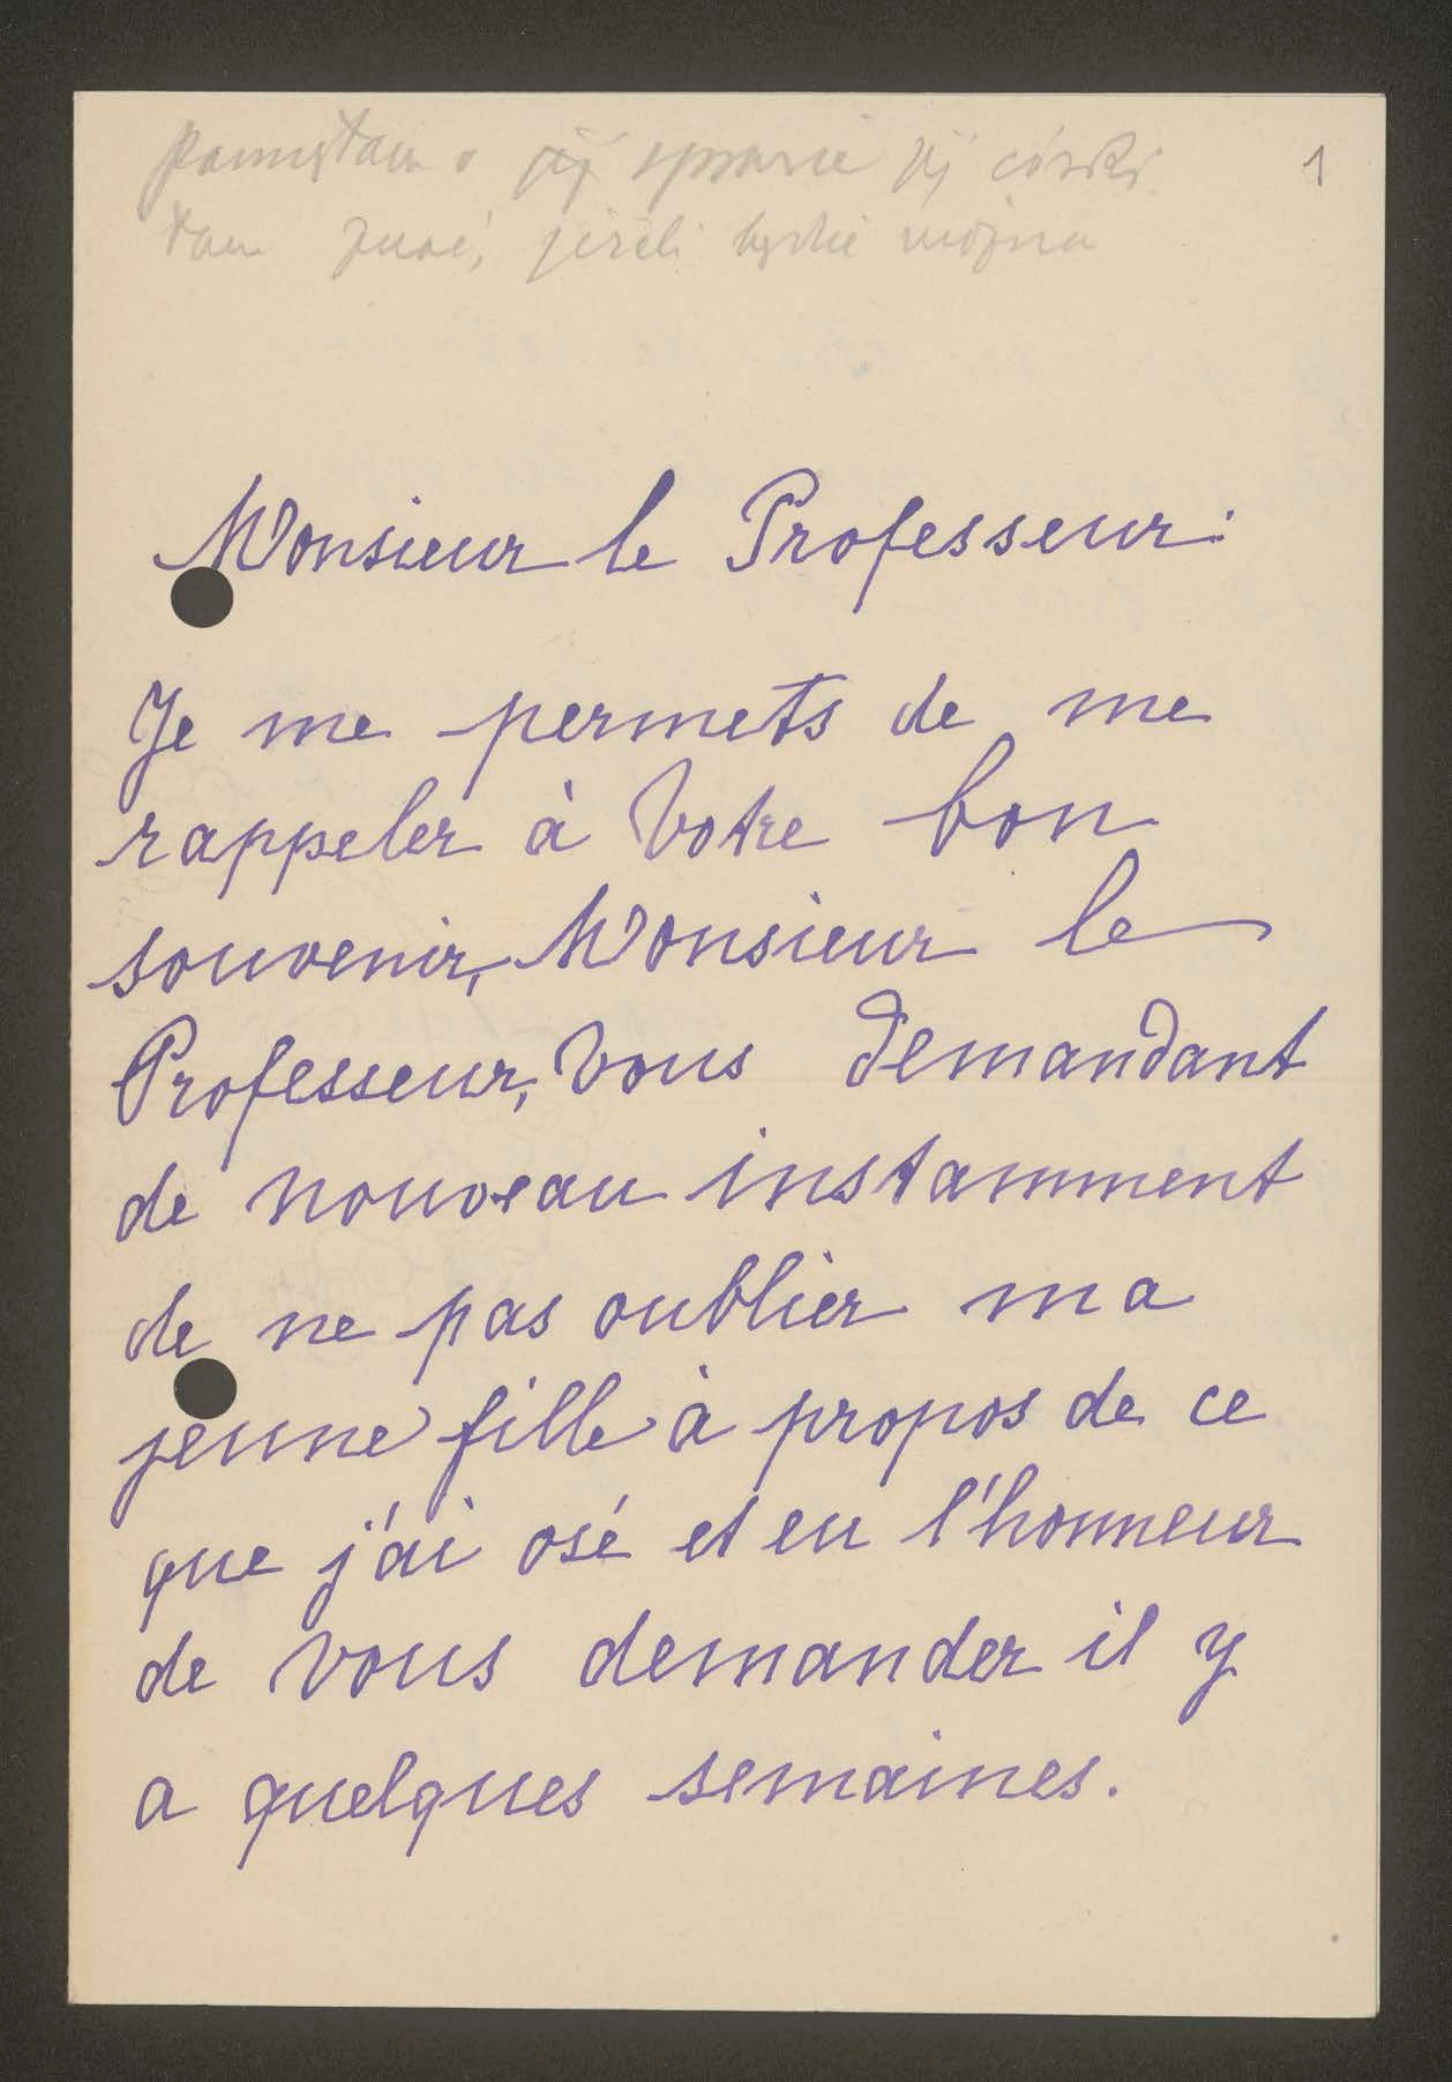 pamiętam o jej sprawie jej córki 1
dam znać, jeżeli będzie można
Monsieur le Professeur:
Je me permets de me
rappeler à Votre bon
souvenir, Monsieur le
Professeur, Vous demandant
de nouveau instamment
de ne pas oublier ma
jeune fille à propos de ce
que j'ai osé et eu l'honneur
de vous demander il y
a quelques semaines.